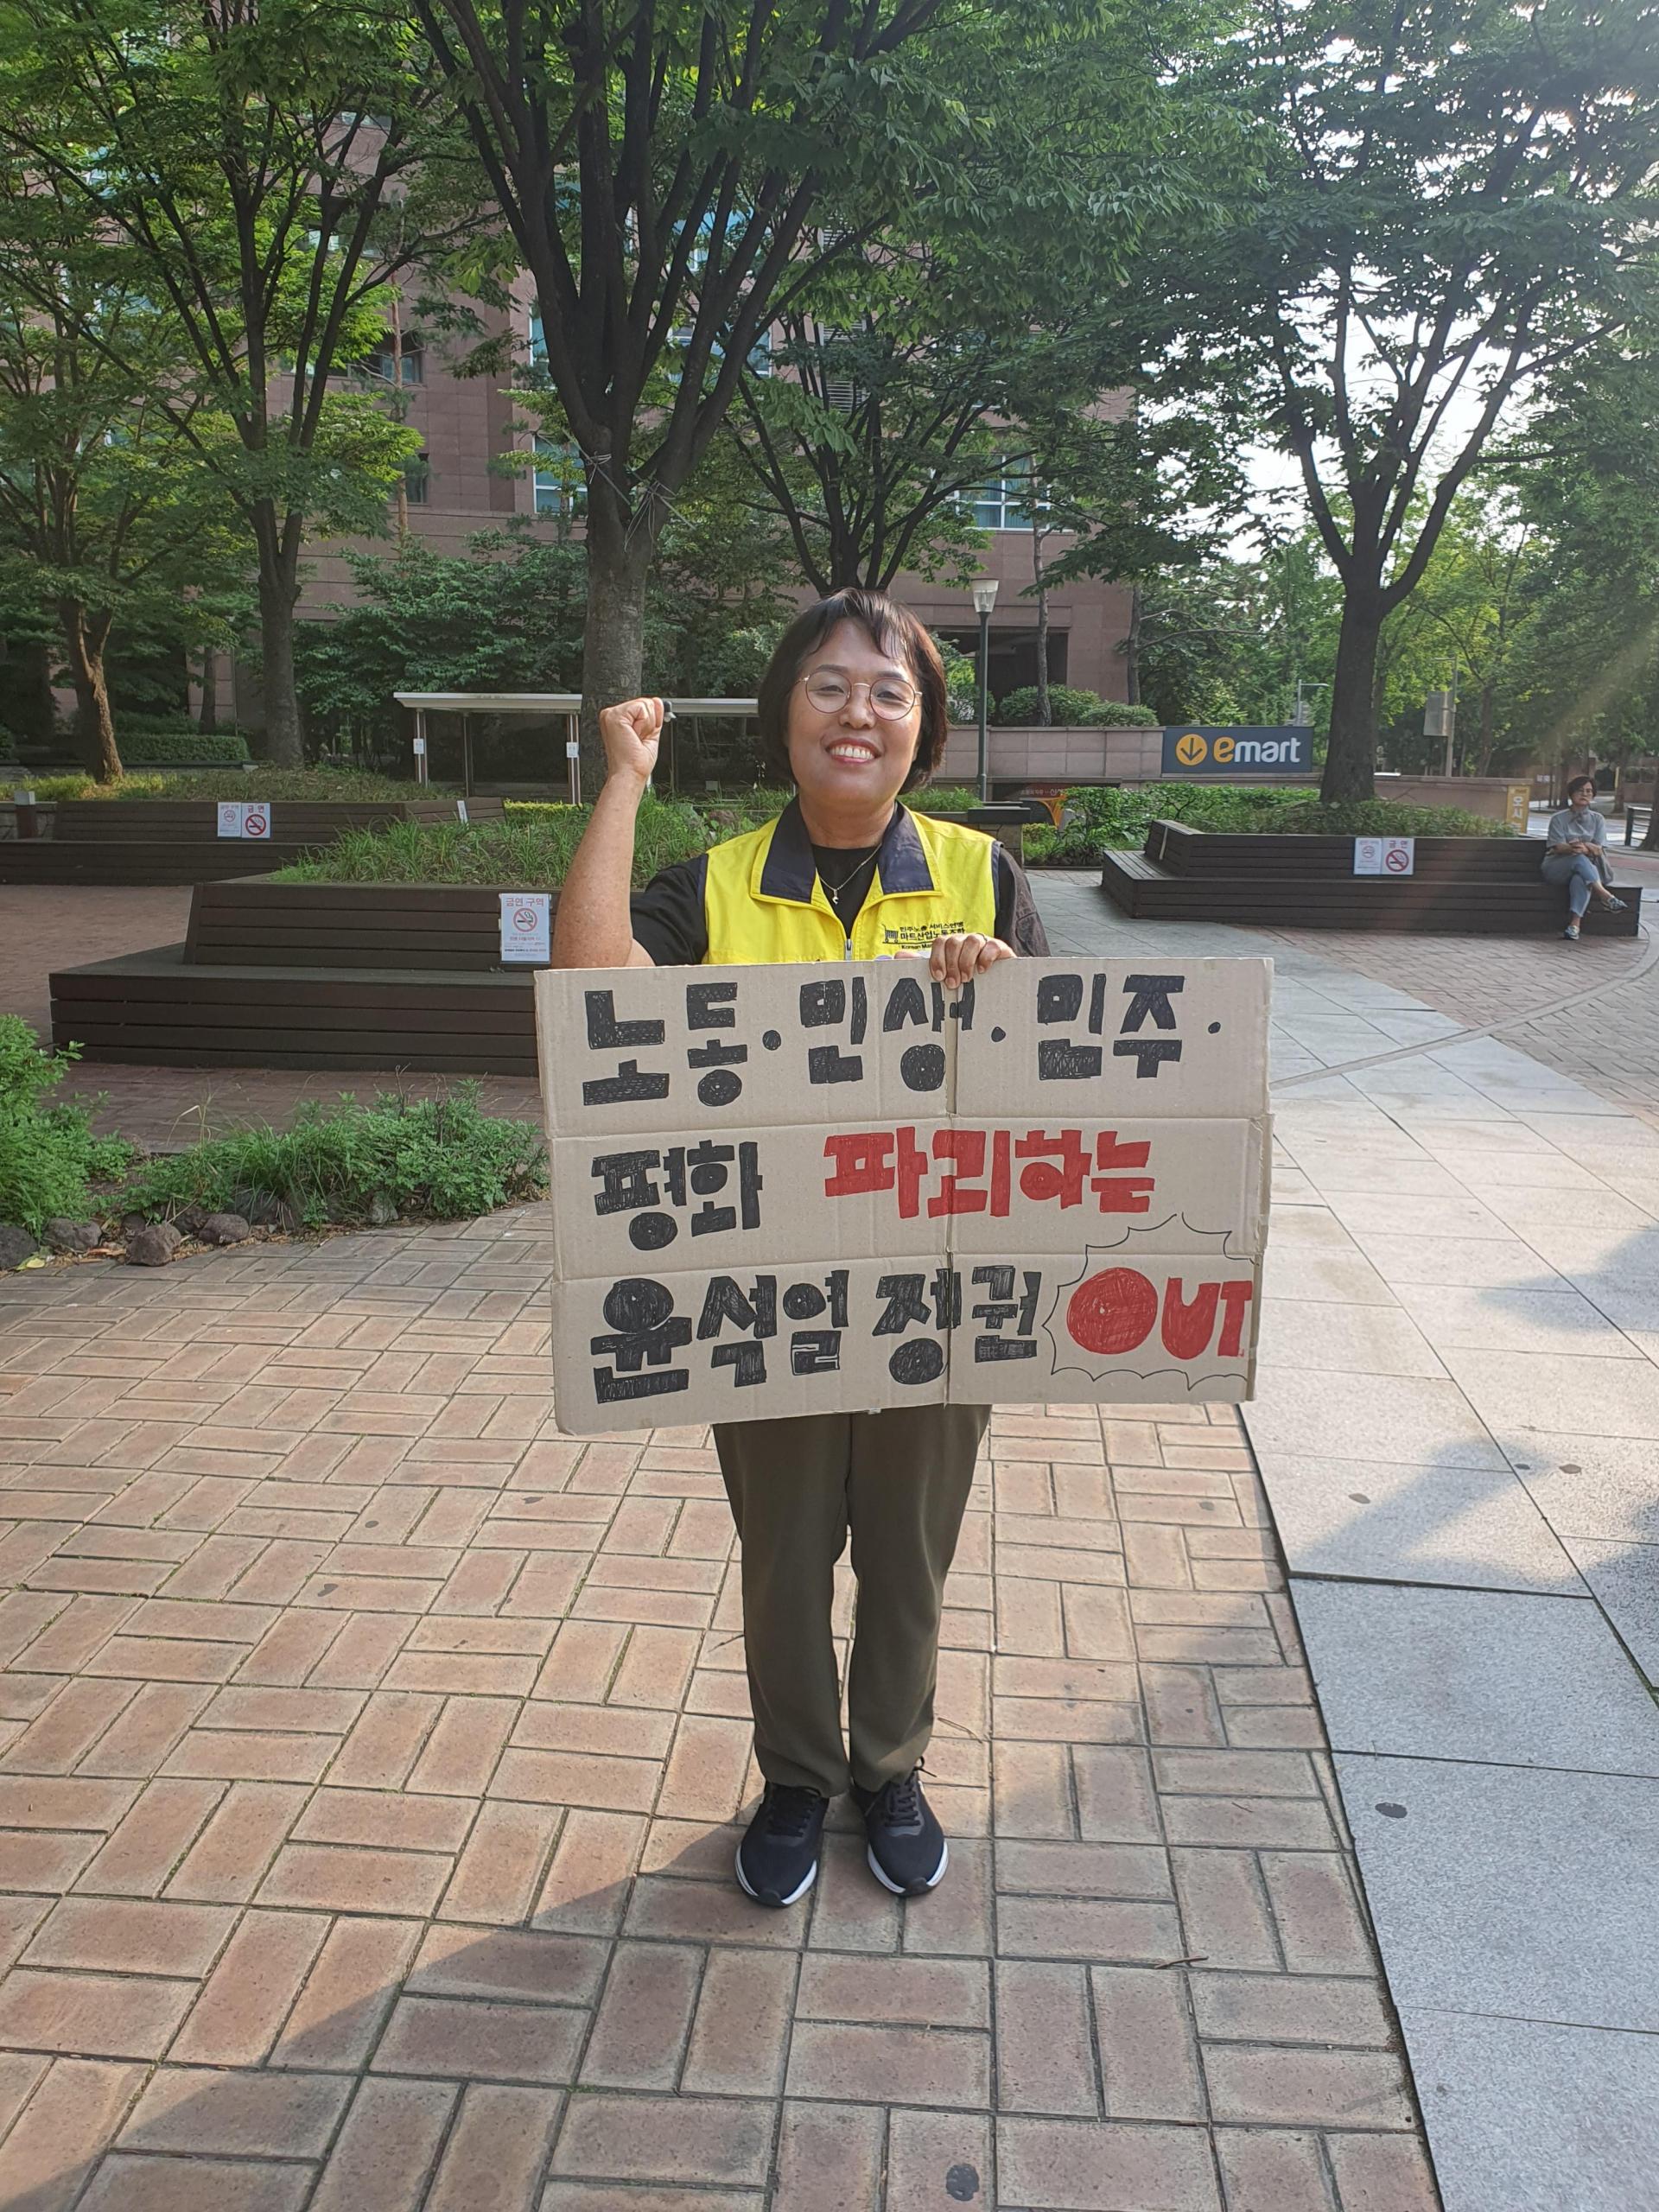 emart
금연
금연 구역
금연
민주노총 서비스연맹
마트산업노동조합
노동·민생·민주·
평화 파괴하는
윤석열 정권 OUT